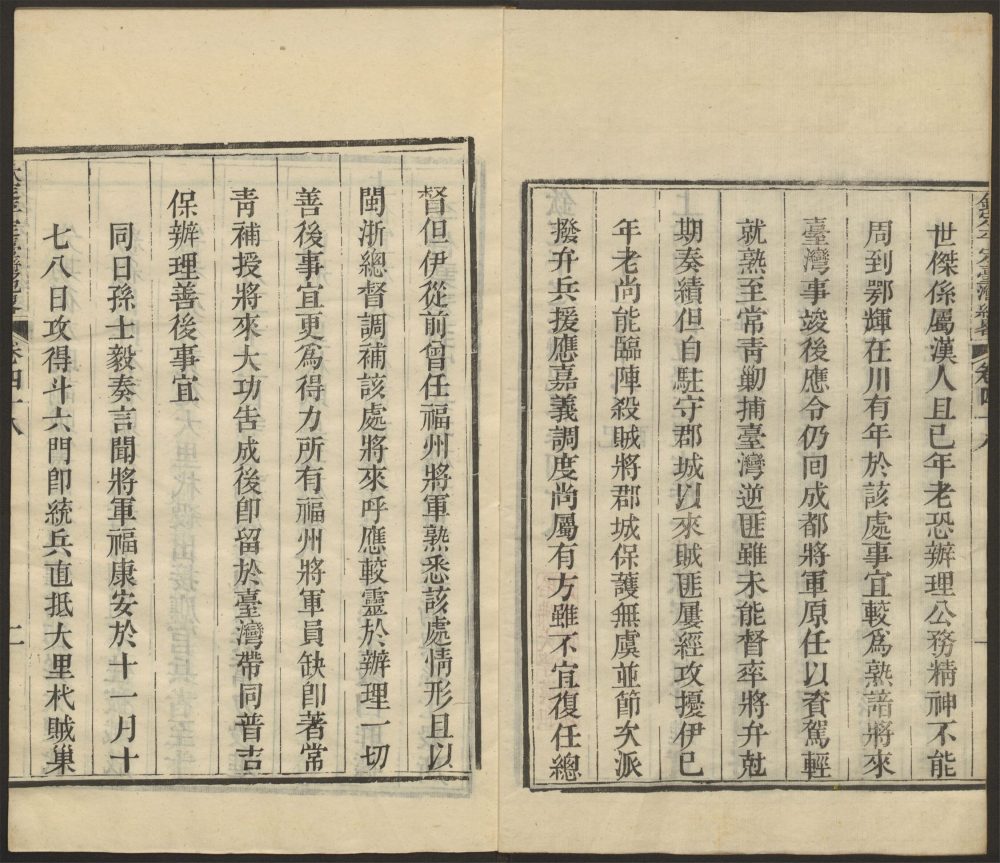 欽定平定臺灣紀畧 卷四十八
世傑係屬漢人且已年老恐辦理公務精神不能
周到鄂輝在川有年於該處事宜較爲熟諳將來
臺灣事竣後應令仍回成都將軍原任以資駕輕
就熟至常青勦捕臺灣逆匪雖未能督率將弁尅
期奏績但自駐守郡城以來賊匪屢經攻擾伊已
年老尚能臨陣殺賊將郡城保護無虞並節次派
撥弁兵援應嘉義調度尚屬有方雖不宜復任總
督但伊從前曾任福州將軍熟悉該處情形且以
閩浙總督調補該處將來呼應較靈於辦理一切
善後事宜更爲得力所有福州將軍員缺卽著常
青補授將來大功告成後卽留於臺灣帶同普吉
保辦理善後事宜
同日孫士毅奏言聞將軍福康安於十一月十
七八日攻得斗六門卽統兵直抵大里杙賊巢
卷四十八
二